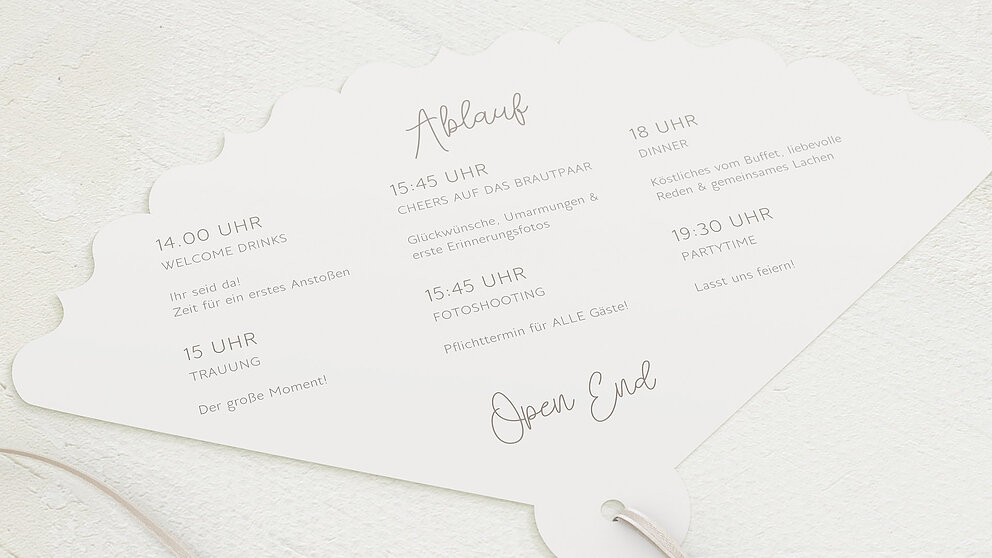 Ablauf
14.00 UHR
WELCOME DRINKS
Ihr seid da!
Zeit für ein erstes Anstoßen
15 UHR
TRAUUNG
Der große Moment!
15:45 UHR
CHEERS AUF DAS BRAUTPAAR
Glückwünsche, Umarmungen &
erste Erinnerungsfotos
15:45 UHR
FOTOSHOOTING
Pflichttermin für ALLE Gäste!
18 UHR
DINNER
Köstliches vom Buffet, liebevolle
Reden & gemeinsames Lachen
19:30 UHR
PARTYTIME
Lasst uns feiern!
Open End